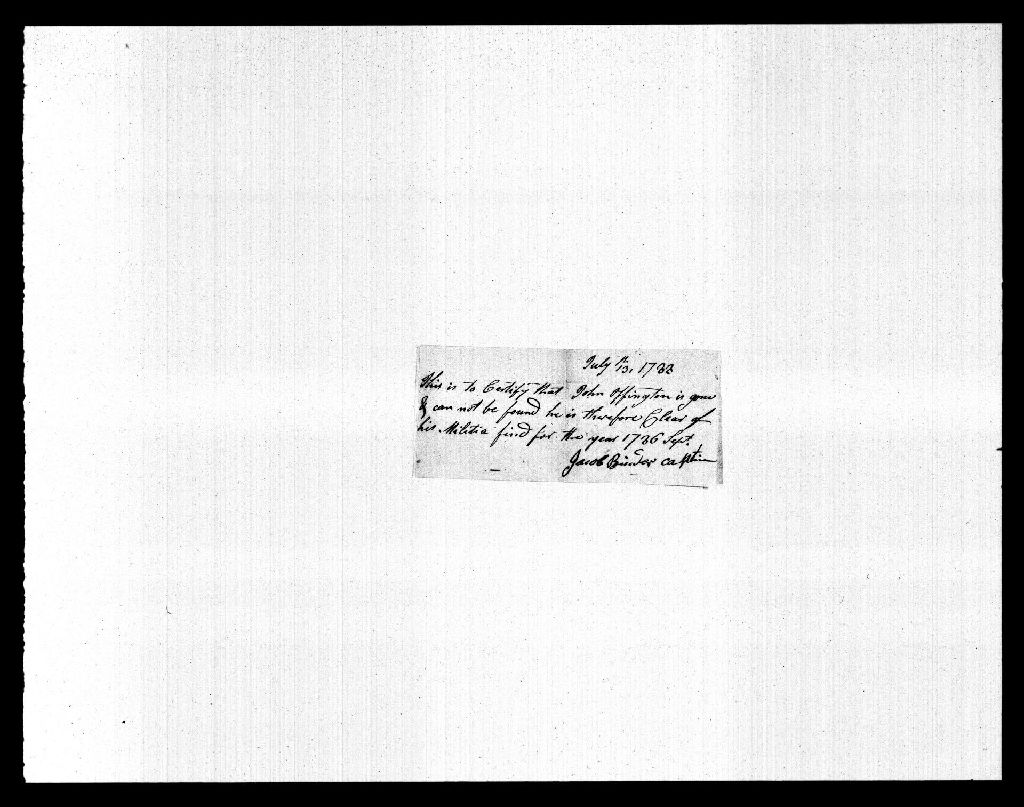 July th 13, 1788
This is to Certify that John Offington is gone
& can not be found he is therefore Clear of
his Militia find for the year 1786 Sept.
Jacob Binder captin